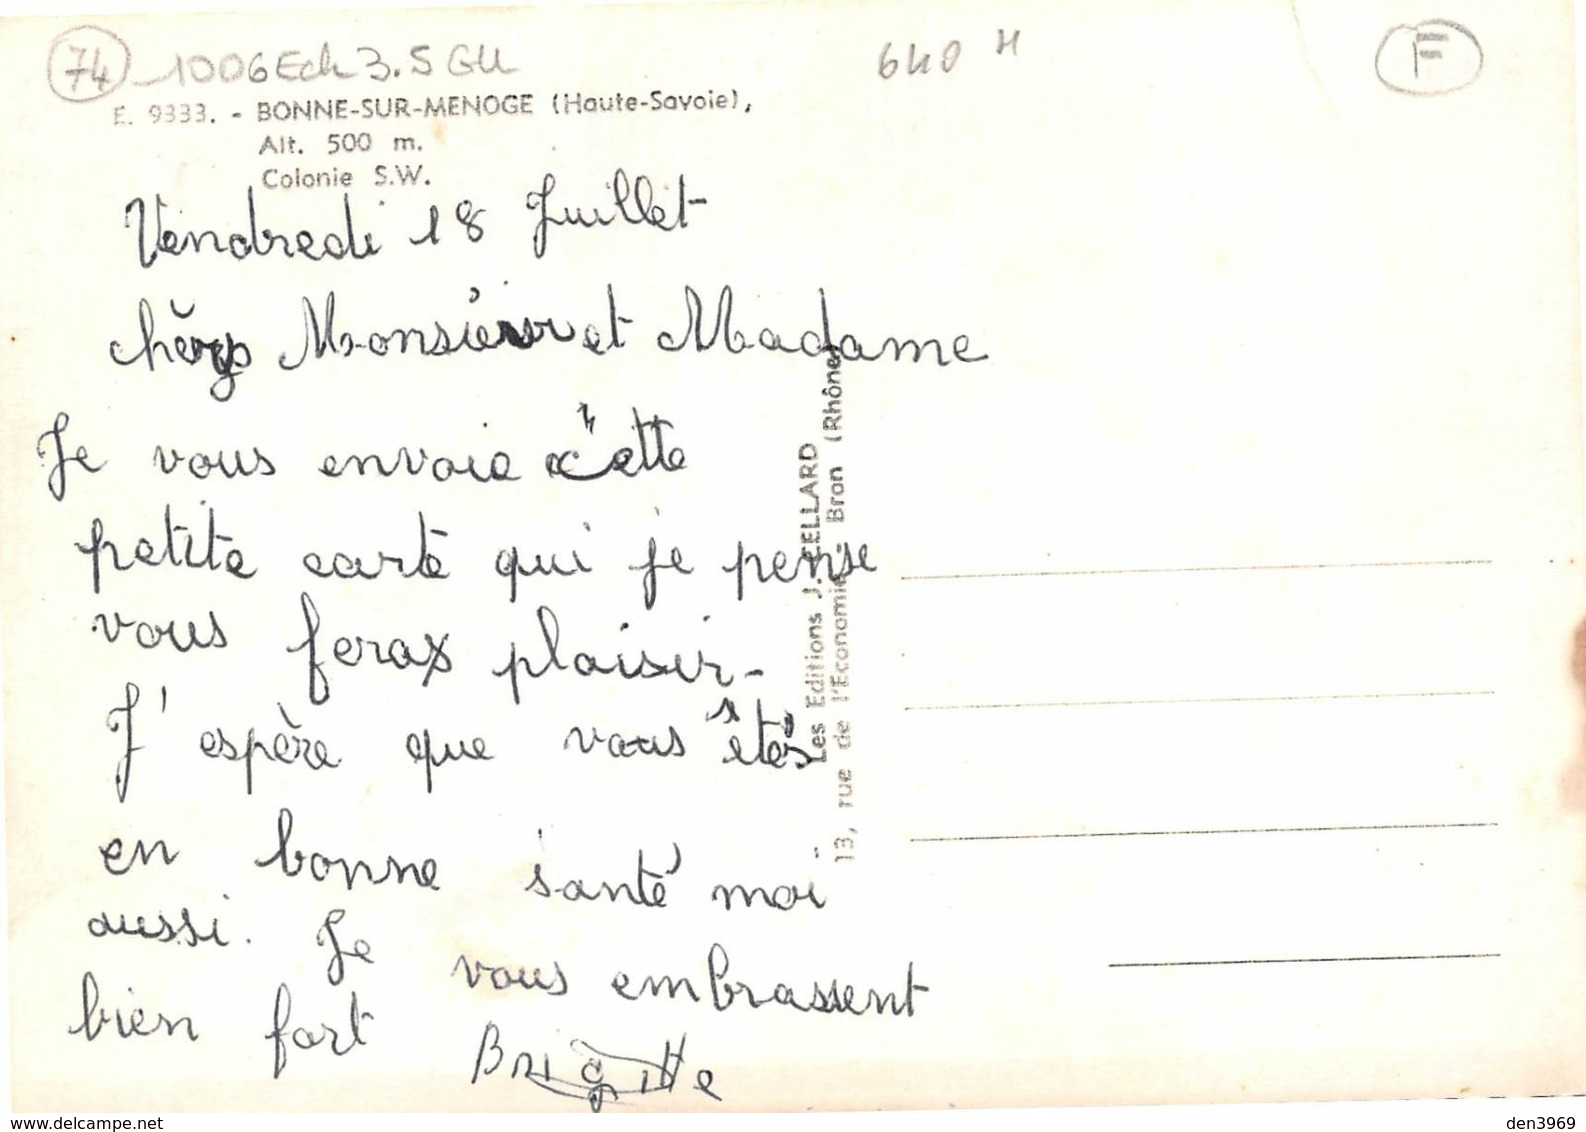 74 1006 Ech 3.5 GU
640 H
F
E. 9333. - BONNE-SUR-MENOGE (Haute-Savoie),
Alt. 500 m.
Colonie S.W.
Vendredi 18 Juillet
chers Monsieur et Madame
Je vous envoie cette
petite carte qui je pense
vous feras plaisir-
J'espère que vous êtes
en bonne santé moi
aussi. Je vous embrassent
bien fort Brigitte
Les Editions J. CELLARD
13, rue de l'Economie - Bron (Rhône)
den3969